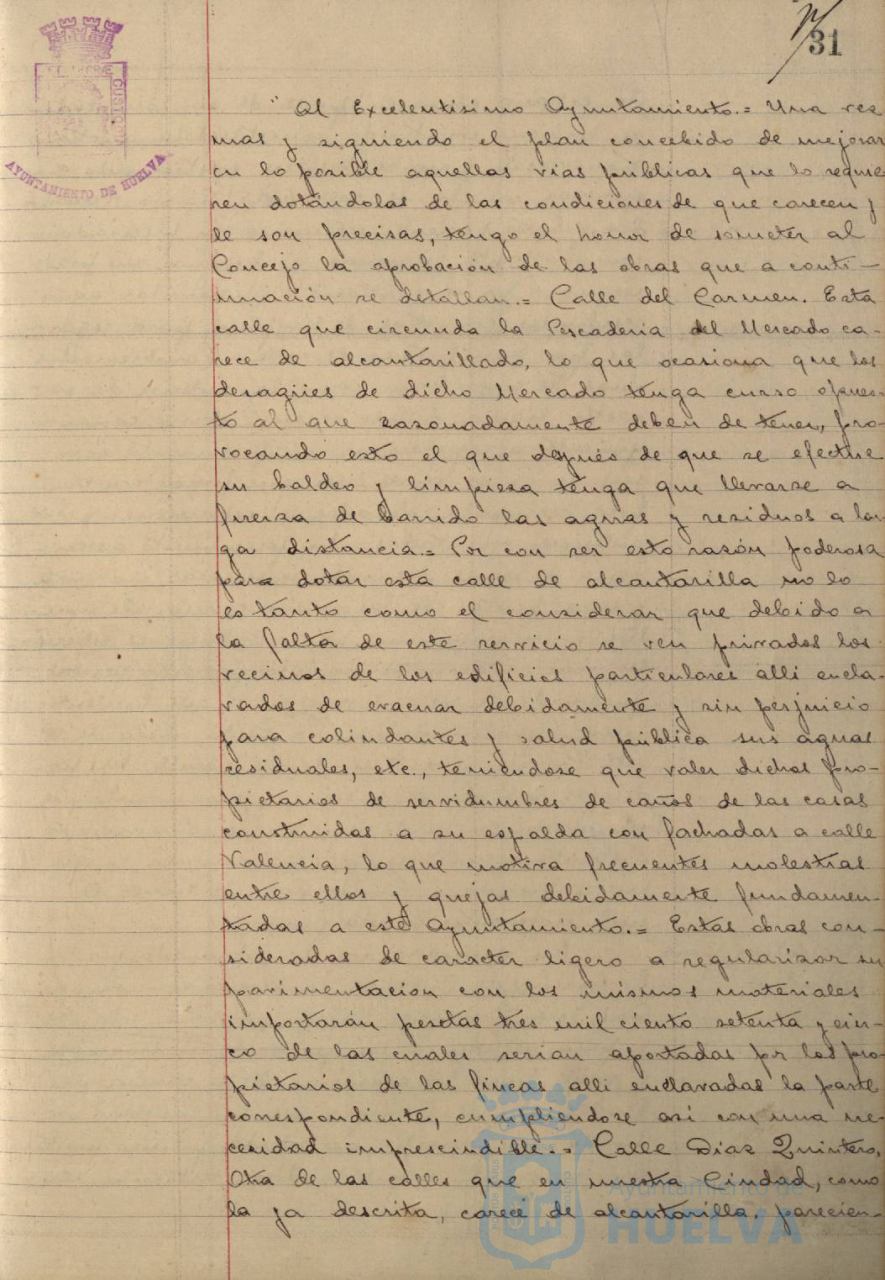 31
AYUNTAMIENTO DE HUELVA
"Al Excelentisimo Ayuntamiento.= Una vez
mas y siguiendo el plan concebido de mejorar
en lo posible aquellas vias públicas que lo requie
ren dotándolas de las condiciones de que carecen y
le son precisas, tengo el honor de someter al
Concejo la aprobación de las obras que a conti-
nuación se detallan.= Calle del Carmen. Esta
calle que circunda la Pescaderia del Mercado ca-
rece de alcantarillado, lo que ocasiona que los
desagües de dicho Mercado tenga curso opues-
to al que razonadamente deben de tener, pro-
vocando esto el que después de que se efectue
su baldeo y limpieza tenga que llevarse a
fuerza de barrido las aguas y residuos a lar
ga distancia.= Por con ser esto razón poderosa
para dotar esta calle de alcantarilla no lo
es tanto como el considerar que debido a
la falta de este servicio se ven privados los
vecinos de los edificios particulares alli encla-
vados de evacuar debidamente y sin perjuicio
para colindantes y salud pública sus aguas
residuales, etc., teniendose que valer dichos pro-
pietarios de servidumbres de caños de las casas
construidas a su espalda con fachadas a calle
Valencia, lo que motiva frecuentes molestias
entre ellos y quejas debidamente fundamen-
tadas a este Ayuntamiento.= Estas obras con-
sideradas de caracter ligero a regularizar su
pavimentacion con los mismos materiales
importarán pesetas tres mil ciento setenta y cin-
co de las cuales serian aportadas por los pro-
pietarios de las fincas alli enclavadas la parte
correspondiente, cumpliendose asi con una ne-
cesidad imprescindible.= Calle Diaz Quintero,
Otra de las calles que en nuestra Ciudad, como
la ya descrita, carece de alcantarilla, parecien-
Ayuntamiento de
HUELVA